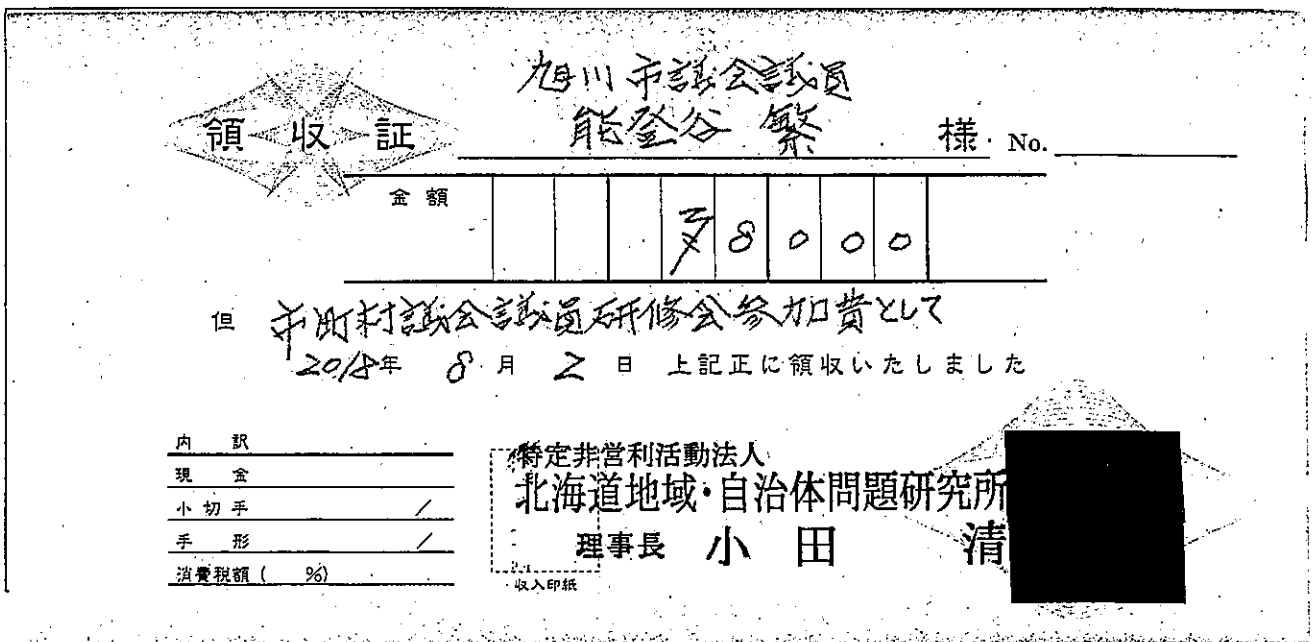 旭川市議会議員
領収証 能登谷 繁 様 No.
金額 ¥8000
但 市町村議会議員研修会参加費として
2018年 8月 2日 上記正に領収いたしました
内訳
現金
小切手 /
手形 /
消費税額( %)
特定非営利活動法人
北海道地域・自治体問題研究所
理事長 小田 清
収入印紙